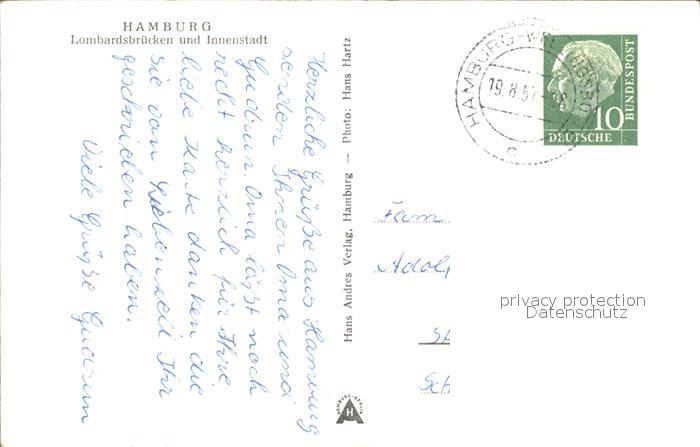 HAMBURG
Lombardsbrücken und Innenstadt
Herzliche Grüße aus Hamburg
senden Ihnen Oma und
Gudrun. Oma läßt noch
recht herzlich für Ihre
liebe Karte danken die
sie von Liebenzell Ihr
geschrieben haben.
Viele Grüße Gudrun
Hans Andres Verlag, Hamburg — Photo: Hans Hartz
HAMBURG-BERLIN
HA
HAMBURG
19.8.57
c
10
DEUTSCHE
BUNDESPOST
Fam
Adol
St
Sch
privacy protection
Datenschutz